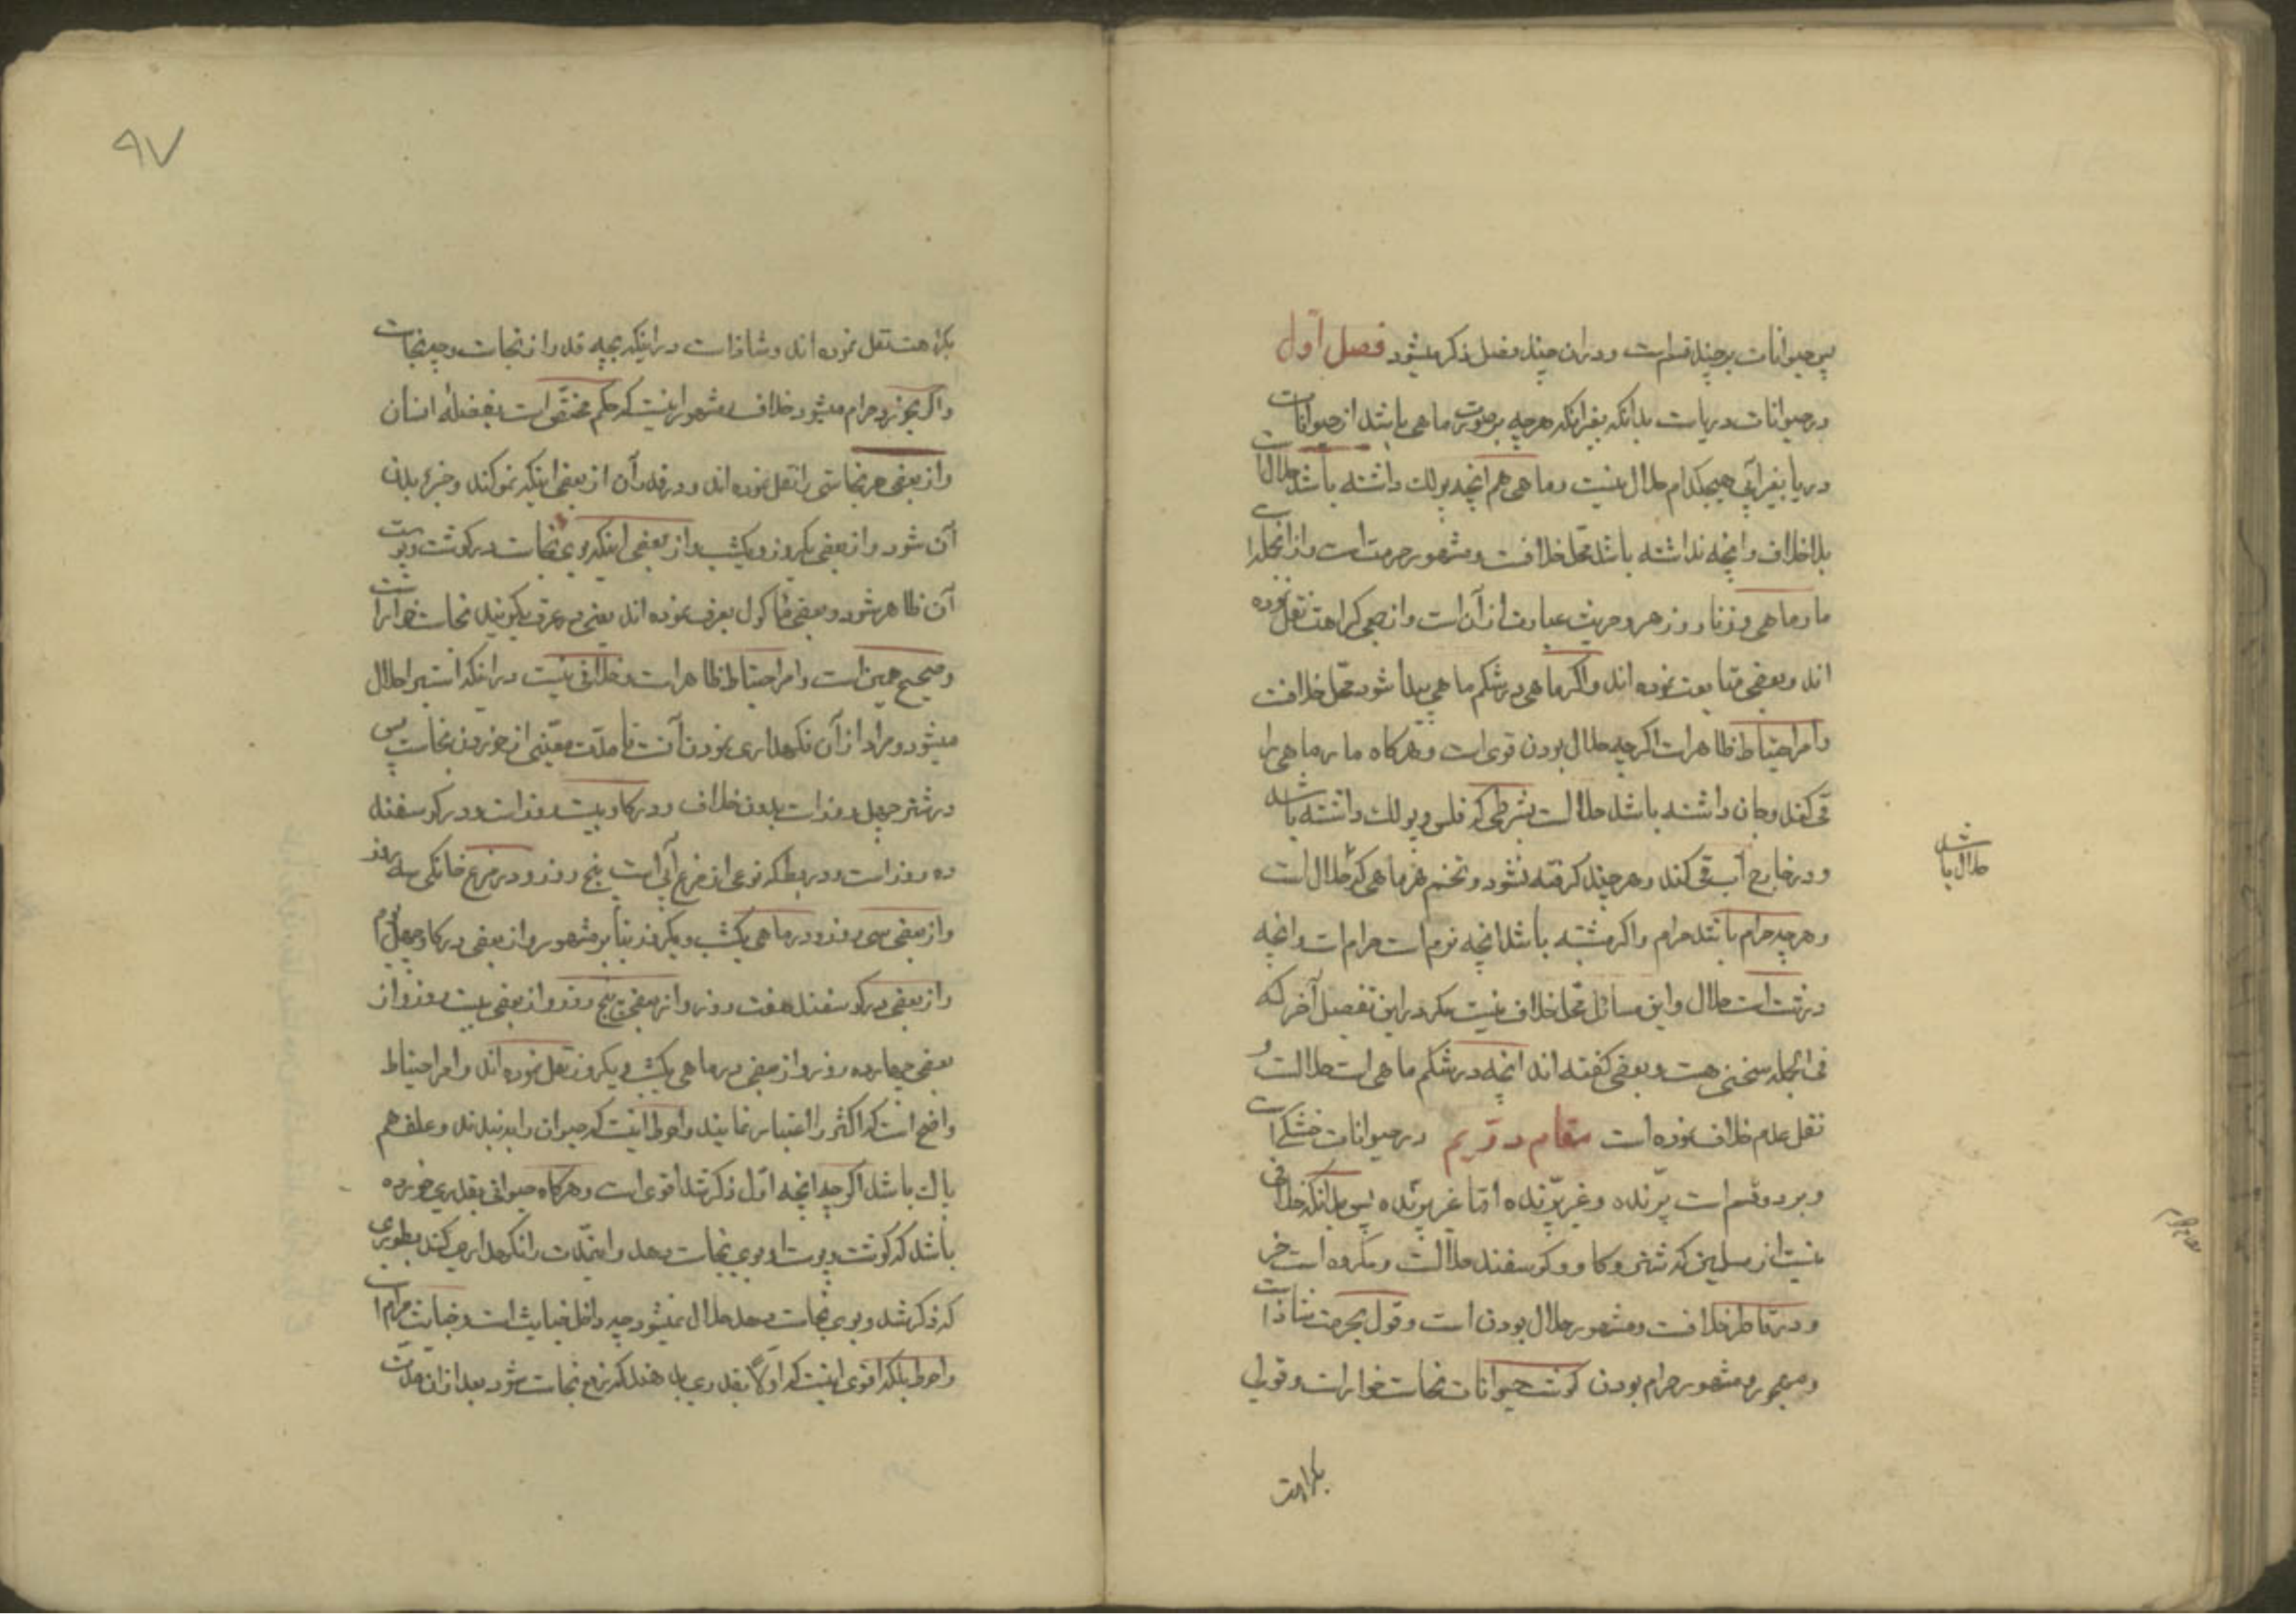 پس حیوانات بر چند قسم است و در ان چند فصل ذکر میشود فصل اول
در حیوانات دریاست بدانکه بغیر انکه هرچه بر صورت ماهی باشد از حیوانات
دریا بغیر آبی هیچکدام حلال نیست و ماهی هم انچه پولک داشته باشد حلال است
بلا خلاف و انچه نداشته باشد محل خلافست و مشهور حرمت است و از انجمله
مارماهی و زمار و زهو و جریث عبارت از آن است و از جمعی کراهت نقل نموده
اند و بعضی متابعت نموده اند و اگر ماهی در شکم ماهی پیدا شود محل خلافست
و امر احتیاط ظاهر است اگرچه حلال بودن قوی است و هرگاه مار ماهی را
قی کند و جان داشته باشد حلالست بشرطی که فلس و پولک داشته باشد
و در خارج آب قی کند و هر چند گرفته نشود و تخم هر ماهی که حلال است
حلال باشد
و هرچه حرام باشد حرام و اگر مشتبه باشد انچه نرم است حرام است و انچه
درشت است حلال و این مسائل محل خلاف نیست مگر در این تفصیل آخر که
فی الجمله سخنی هست و بعضی گفته اند انچه در شکم ماهی است حلالست و
نقل عدم خلاف نموده است مقام دویم در حیوانات خشکی است
و بر دو قسم است پرنده و غیر پرنده اما غیر پرنده پس بدانکه خلافی
نیست از مسلمین که شتر و گاو و گوسفند حلالست و مکروه است خر
و در قاطر خلافست و مشهور حلال بودن است و قول بحرمت شاذ است
و مهجور و مشهور حرام بودن گوشت حیوانات نجاست خوار است و قول
بکراهت
۹۷
بکراهت نقل نموده اند و شاذ است در اینکه بچه قدر از نجاست و چه نجاست
و اگر بخورد حرام میشود خلاف و مشهور اینست که حکم مختص است بفضله انسان
و از بعضی هر نجاستی را نقل نموده اند و در قدر آن از بعضی اینکه نمو کند و جزء بدن
آن شود و از بعضی یکروز و یکشب و از بعضی اینکه بوی نجاست در گوشت و پوست
آن ظاهر شود و بعضی بعرف نموده اند یعنی در عرف بگویند نجاست خوار است
و صحیح همین است و امر احتیاط ظاهر است و خلافی نیست در انکه استبرا حلال
میشود و مراد از آن نگهداری نمودن آنست تا مدت معینی از خوردن نجاست پس
در شتر چهل روز است بدون خلاف و در گاو بیست روز است و در گوسفند
ده روز است و در بط که نوعی از مرغ آبی است پنج روز و در مرغ خانگی سه روز
و از بعضی سی روز و در ماهی یکشب و یکروز بنا بر مشهور و از بعضی در گاو چهل روز
و از بعضی در گوسفند هفت روز و از بعضی پنج روز و از بعضی بیست روز و از
بعضی چهارده روز و از بعضی در ماهی یکشب و یکروز نقل نموده اند و امر احتیاط
واضح است که اکثر را اعتبار نمایند و احوط اینست که حیوان را ببندند و علف هم
پاک باشد اگرچه انچه اول ذکر شد اقوی است و هرگاه حیوانی بقدری خورده
باشد که گوشت و پوست او بوی نجاست بدهد و اینمدت را نگهداری کند بطوری
که ذکر شد و بوی نجاست بدهد حلال نمیشود چه داخل خبایث است و خباثت حرام است
و احوط بلکه اقوی اینست که اولا بقدری بدهند که رفع نجاست شود بعد از ان مدت